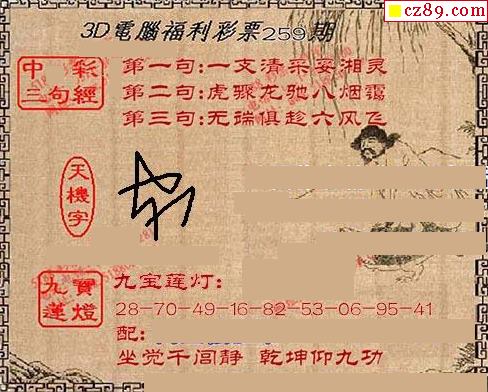 cz89.com
3D電腦福利彩票259期
中彩
三句經
第一句:一支清采妥湘灵
第二句:虎骤龙驰八烟霭
第三句:无端俱趁六风飞
天機字
九寶
蓮燈
九宝莲灯:
28-70-49-16-82-53-06-95-41
配:
坐觉千闾静 乾坤仰九功